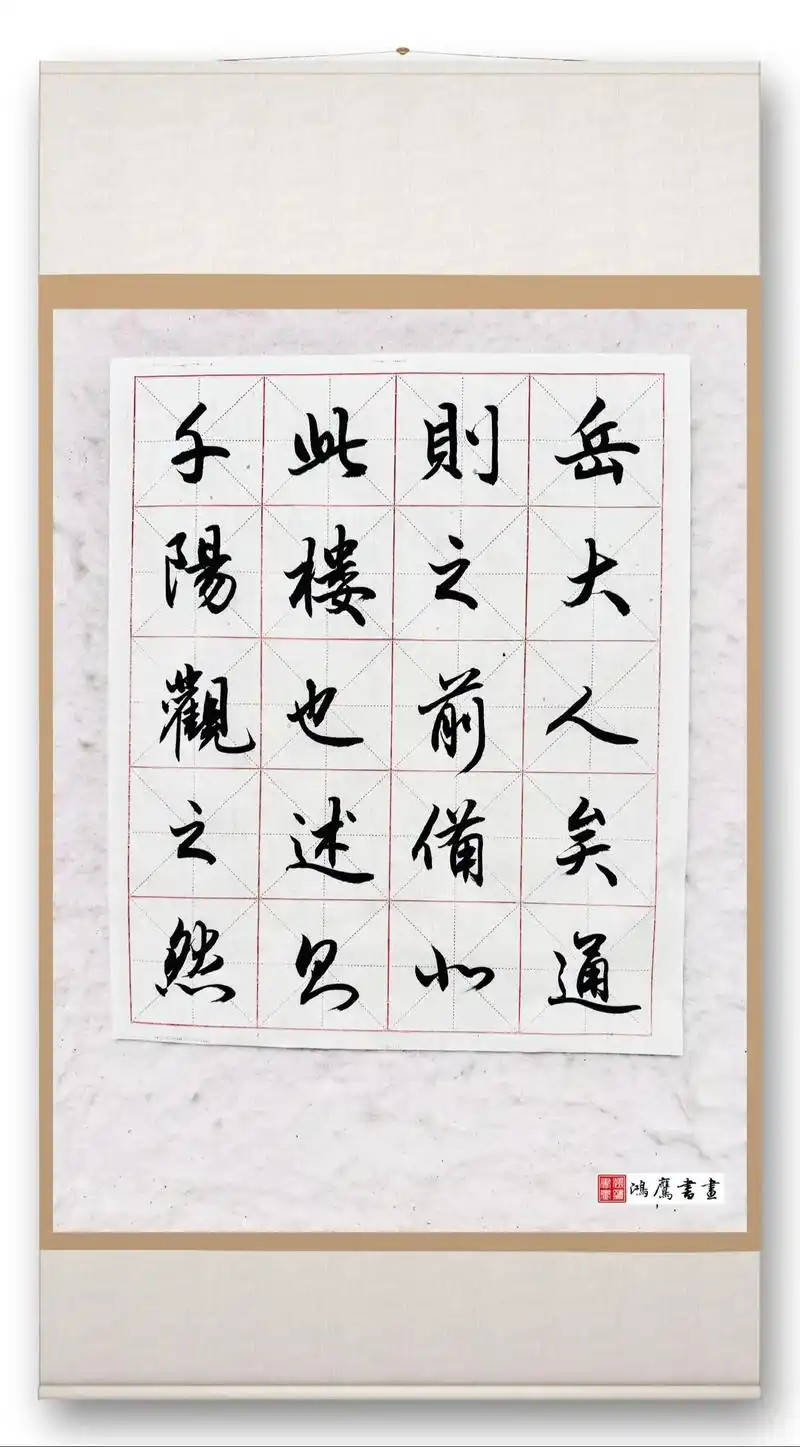 千此則岳
陽楼之大
觀也前人
之述備矣
然則北通
鴻鷹書畫